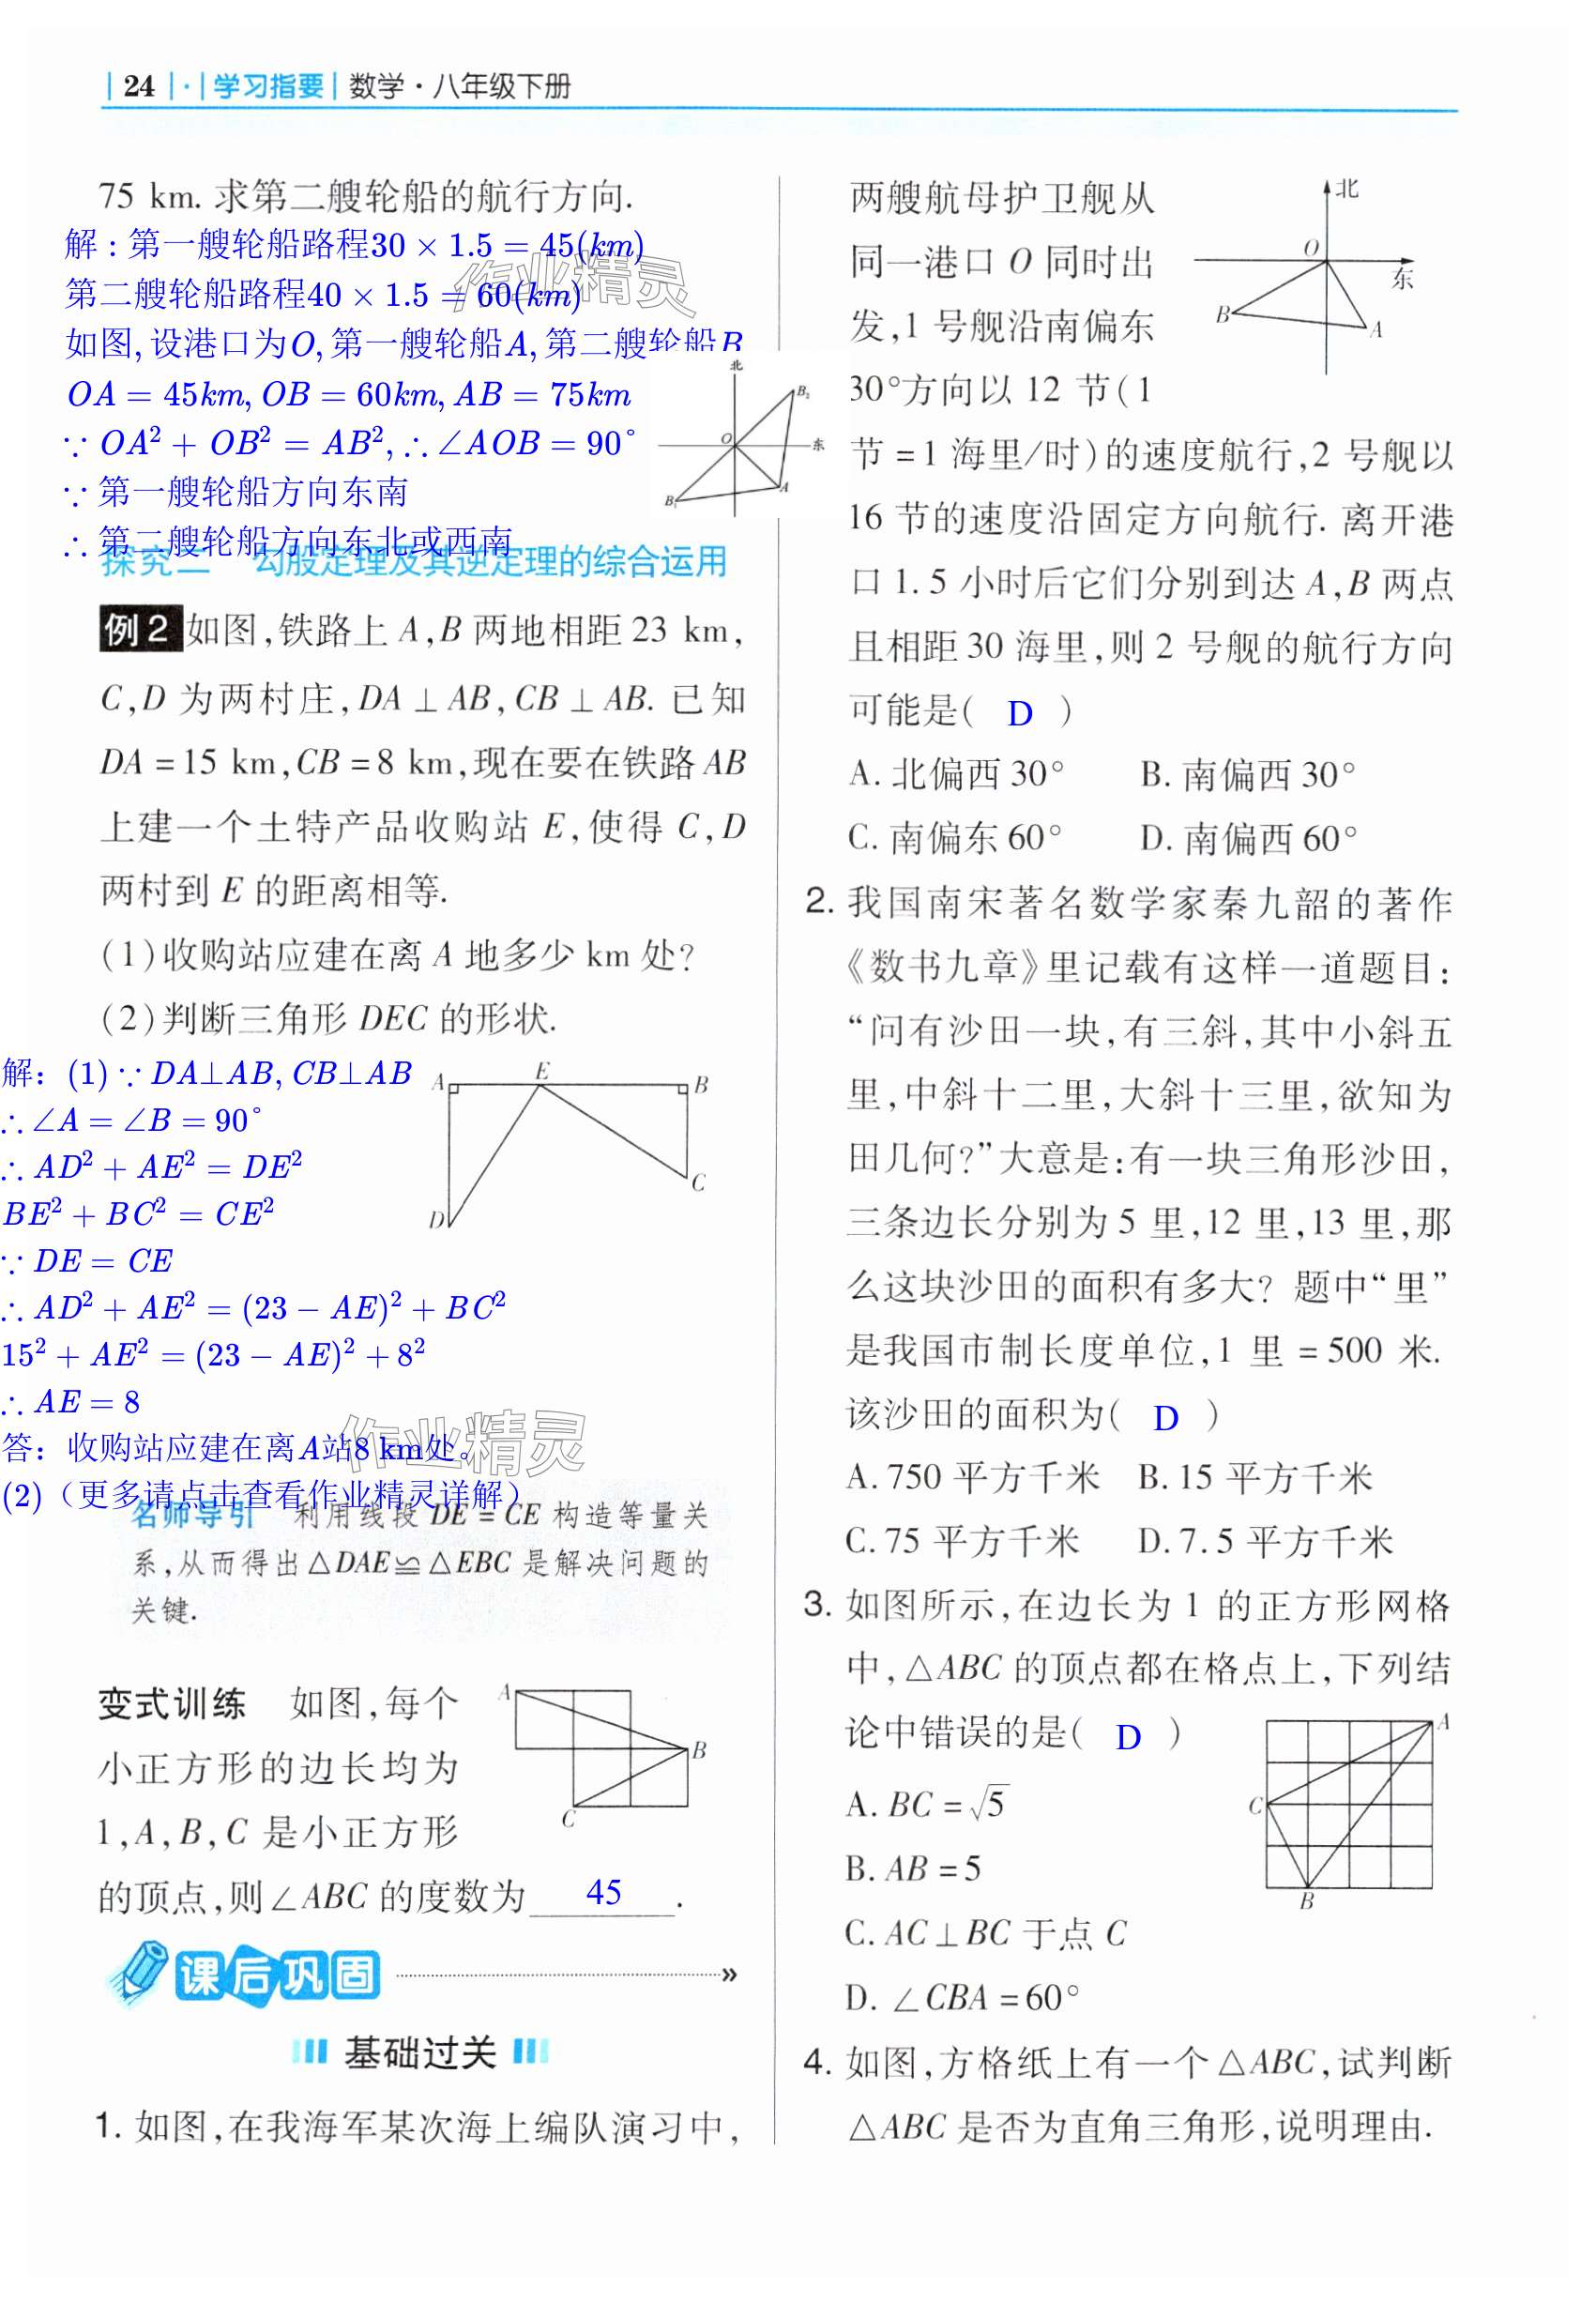 24 · 学习指要 数学·八年级下册
75 km. 求第二艘轮船的航行方向.
解:第一艘轮船路程30 × 1.5 = 45(km)
第二艘轮船路程40 × 1.5 = 60(km)
如图,设港口为O,第一艘轮船A,第二艘轮船B
OA = 45km, OB = 60km, AB = 75km
∵ OA² + OB² = AB², ∴ ∠AOB = 90°
∵ 第一艘轮船方向东南
∴ 第二艘轮船方向东北或西南
北
B₂
O
东
B₁
A
作业精灵
探究二 勾股定理及其逆定理的综合运用
例2 如图,铁路上 A,B 两地相距 23 km,
C,D 为两村庄,DA ⊥ AB,CB ⊥ AB. 已知
DA = 15 km,CB = 8 km,现在要在铁路 AB
上建一个土特产品收购站 E,使得 C,D
两村到 E 的距离相等.
(1)收购站应建在离 A 地多少 km 处?
(2)判断三角形 DEC 的形状.
解: (1) ∵ DA⊥AB, CB⊥AB
∴ ∠A = ∠B = 90°
∴ AD² + AE² = DE²
BE² + BC² = CE²
∵ DE = CE
∴ AD² + AE² = (23 − AE)² + BC²
15² + AE² = (23 − AE)² + 8²
∴ AE = 8
答: 收购站应建在离A站8 km处。
(2)(更多请点击查看作业精灵详解)
A
E
B
C
D
作业精灵
名师导引 利用线段 DE = CE 构造等量关
系,从而得出△DAE≌△EBC 是解决问题的
关键.
变式训练 如图,每个
小正方形的边长均为
1,A,B,C 是小正方形
的顶点,则∠ABC 的度数为 45 .
A
B
C
课后巩固 »
基础过关
1. 如图,在我海军某次海上编队演习中,
两艘航母护卫舰从
同一港口 O 同时出
发,1 号舰沿南偏东
30°方向以 12 节(1
节 = 1 海里/时)的速度航行,2 号舰以
16 节的速度沿固定方向航行. 离开港
口 1.5 小时后它们分别到达 A,B 两点
且相距 30 海里,则 2 号舰的航行方向
可能是( D )
北
O
东
B
A
A. 北偏西 30° B. 南偏西 30°
C. 南偏东 60° D. 南偏西 60°
2. 我国南宋著名数学家秦九韶的著作
《数书九章》里记载有这样一道题目:
“问有沙田一块,有三斜,其中小斜五
里,中斜十二里,大斜十三里,欲知为
田几何?”大意是:有一块三角形沙田,
三条边长分别为 5 里,12 里,13 里,那
么这块沙田的面积有多大? 题中“里”
是我国市制长度单位,1 里 = 500 米.
该沙田的面积为( D )
A. 750 平方千米 B. 15 平方千米
C. 75 平方千米 D. 7.5 平方千米
3. 如图所示,在边长为 1 的正方形网格
中,△ABC 的顶点都在格点上,下列结
论中错误的是( D )
A. BC = √5
B. AB = 5
C. AC ⊥ BC 于点 C
D. ∠CBA = 60°
A
C
B
4. 如图,方格纸上有一个△ABC,试判断
△ABC 是否为直角三角形,说明理由.